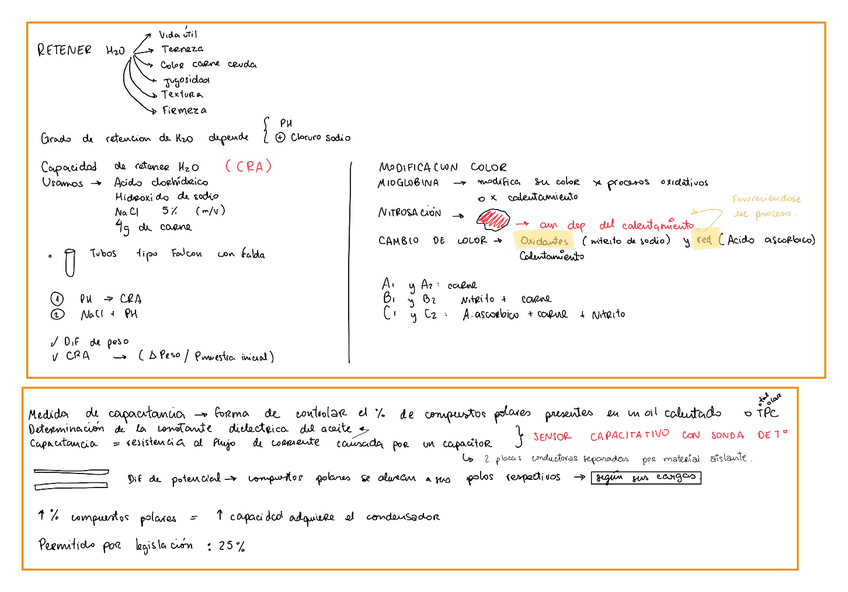 RETENER H2O
Vida útil
Terneza
Color carne cruda
Jugosidad
Textura
Firmeza
Grado de retencion de H2O depende { PH
⊕ Cloruro sodio
Capacidad de retener H2O (CRA)
Usamos → Acido clorhídrico
Hidroxido de sodio
NaCl 5% (m/v)
4g de carne
• Tubos tipo Falcon con falda
① PH → CRA
② NaCl + PH
✓ Dif de peso
✓ CRA → (Δ Peso / Pmuestra inicial)
MODIFICACION COLOR
MIOGLOBINA → modifica su color x procesos oxidativos
o x calentamiento
Favoreciendose
ese proceso.
NITROSACIÓN → → aun dsp del calentamiento.
CAMBIO DE COLOR → Oxidantes (nitrito de sodio) y red (Acido ascorbico)
Calentamiento
A1 y A2: carne
B1 y B2 Nitrito + carne
C1 y C2: A.ascorbico + carne + Nitrito
Medida de capacitancia → forma de controlar el % de compuestos polares presentes en un oil calentado o TPC
Determinación de la constante dielectrica del aceite
Capacitancia = resistencia al flujo de corriente causada por un capacitor } SENSOR CAPACITATIVO CON SONDA DE Tº
↳ 2 placas conductoras separadas por material aislante.
Dif de potencial → compuestos polares se alinean a sus polos respectivos → según sus cargas
↑ % compuestos polares = ↑ capacidad adquiere el condensador
Permitido por legislación : 25%